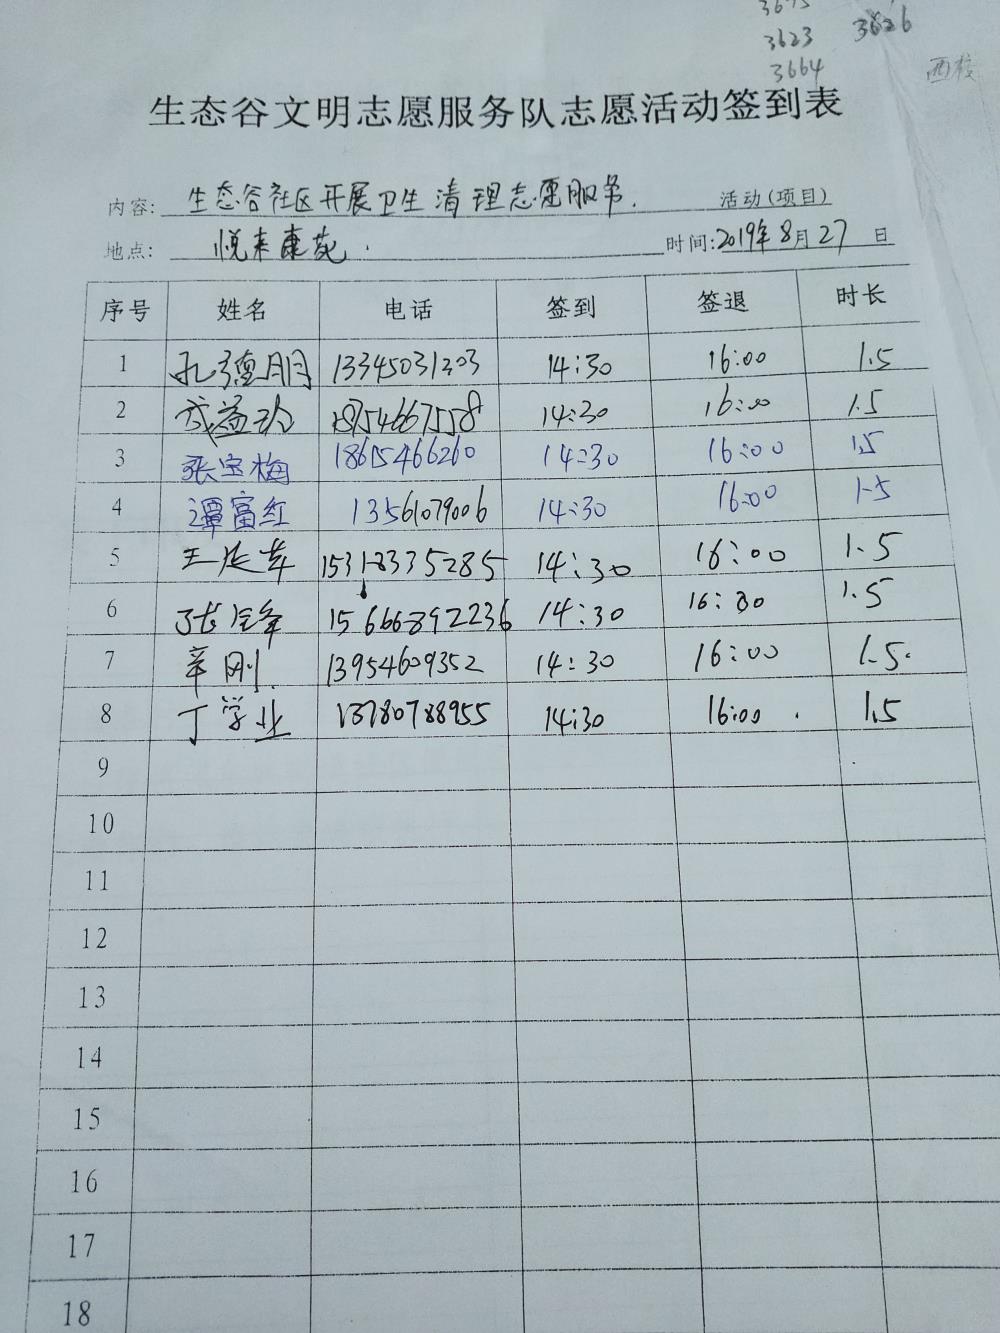 3623 3626
3664
西校
生态谷文明志愿服务队志愿活动签到表
内容: 生态谷社区开展卫生清理志愿服务. 活动(项目)
地点: 悦来康苑. 时间:2019年8月27日
序号 姓名 电话 签到 签退 时长
1 孔德朋 13345031203 14:30 16:00 1.5
2 成益玲 18754667558 14:30 16:00 1.5
3 张宝梅 18615466260 14:30 16:00 1.5
4 谭富红 13561079006 14:30 16:00 1.5
5 15318335285 14:30 16:00 1.5
6 15666892236 14:30 16:30 1.5
7 辛刚 13954609352 14:30 16:00 1.5.
8 丁学业 13780788955 14:30 16:00 1.5
9
10
11
12
13
14
15
16
17
18